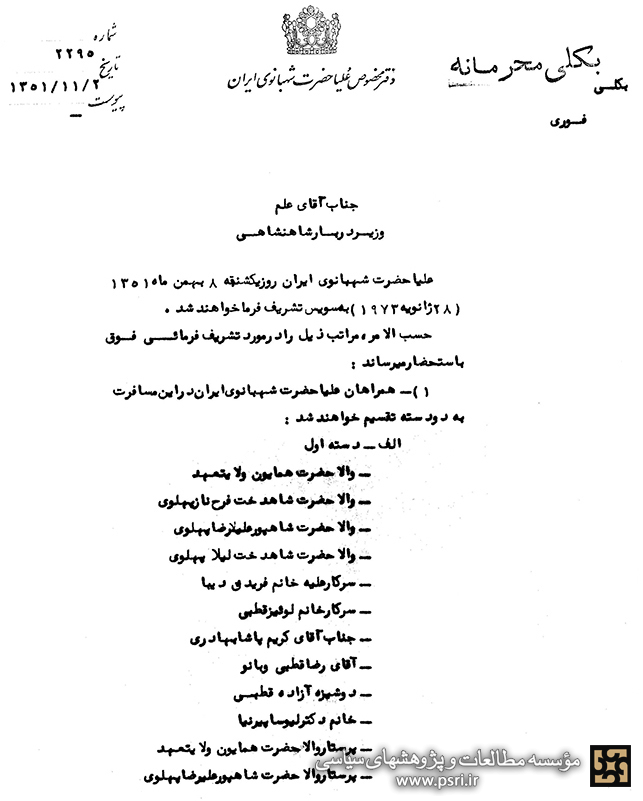 شماره
۲۲۹۵
تاریخ
۱۳۵۱/۱۱/۲
پیوست
دفتر مخصوص علیاحضرت شهبانوی ایران
بکلی محرمانه
بکلی
فوری
جناب آقای علم
وزیر دربار شاهنشاهی
علیاحضرت شهبانوی ایران روز یکشنبه ۸ بهمن ماه ۱۳۵۱
(۲۸ ژانویه ۱۹۷۳) به سویس تشریف فرما خواهند شد.
حسب الامر، مراتب ذیل را در مورد تشریف فرمائی فوق
باستحضار میرساند:
۱) ــ همراهان علیاحضرت شهبانوی ایران در این مسافرت
به دو دسته تقسیم خواهند شد:
الف ــ دسته اول
ــ والاحضرت همایون ولایتعهد
ــ والاحضرت شاهدخت فرحناز پهلوی
ــ والاحضرت شاهپور علیرضا پهلوی
ــ والاحضرت شاهدخت لیلا پهلوی
ــ سرکار علیه خانم فریده دیبا
ــ سرکار خانم لوئیز قطبی
ــ جناب آقای کریم پاشا بهادری
ــ آقای رضا قطبی و بانو
ــ دوشیزه آزاده قطبی
ــ خانم دکتر لیوسا پیرنیا
ــ پرستار والاحضرت همایون ولایتعهد
ــ پرستار والاحضرت شاهپور علیرضا پهلوی
مؤسسه مطالعات و پژوهشهای سیاسی
www.psri.ir